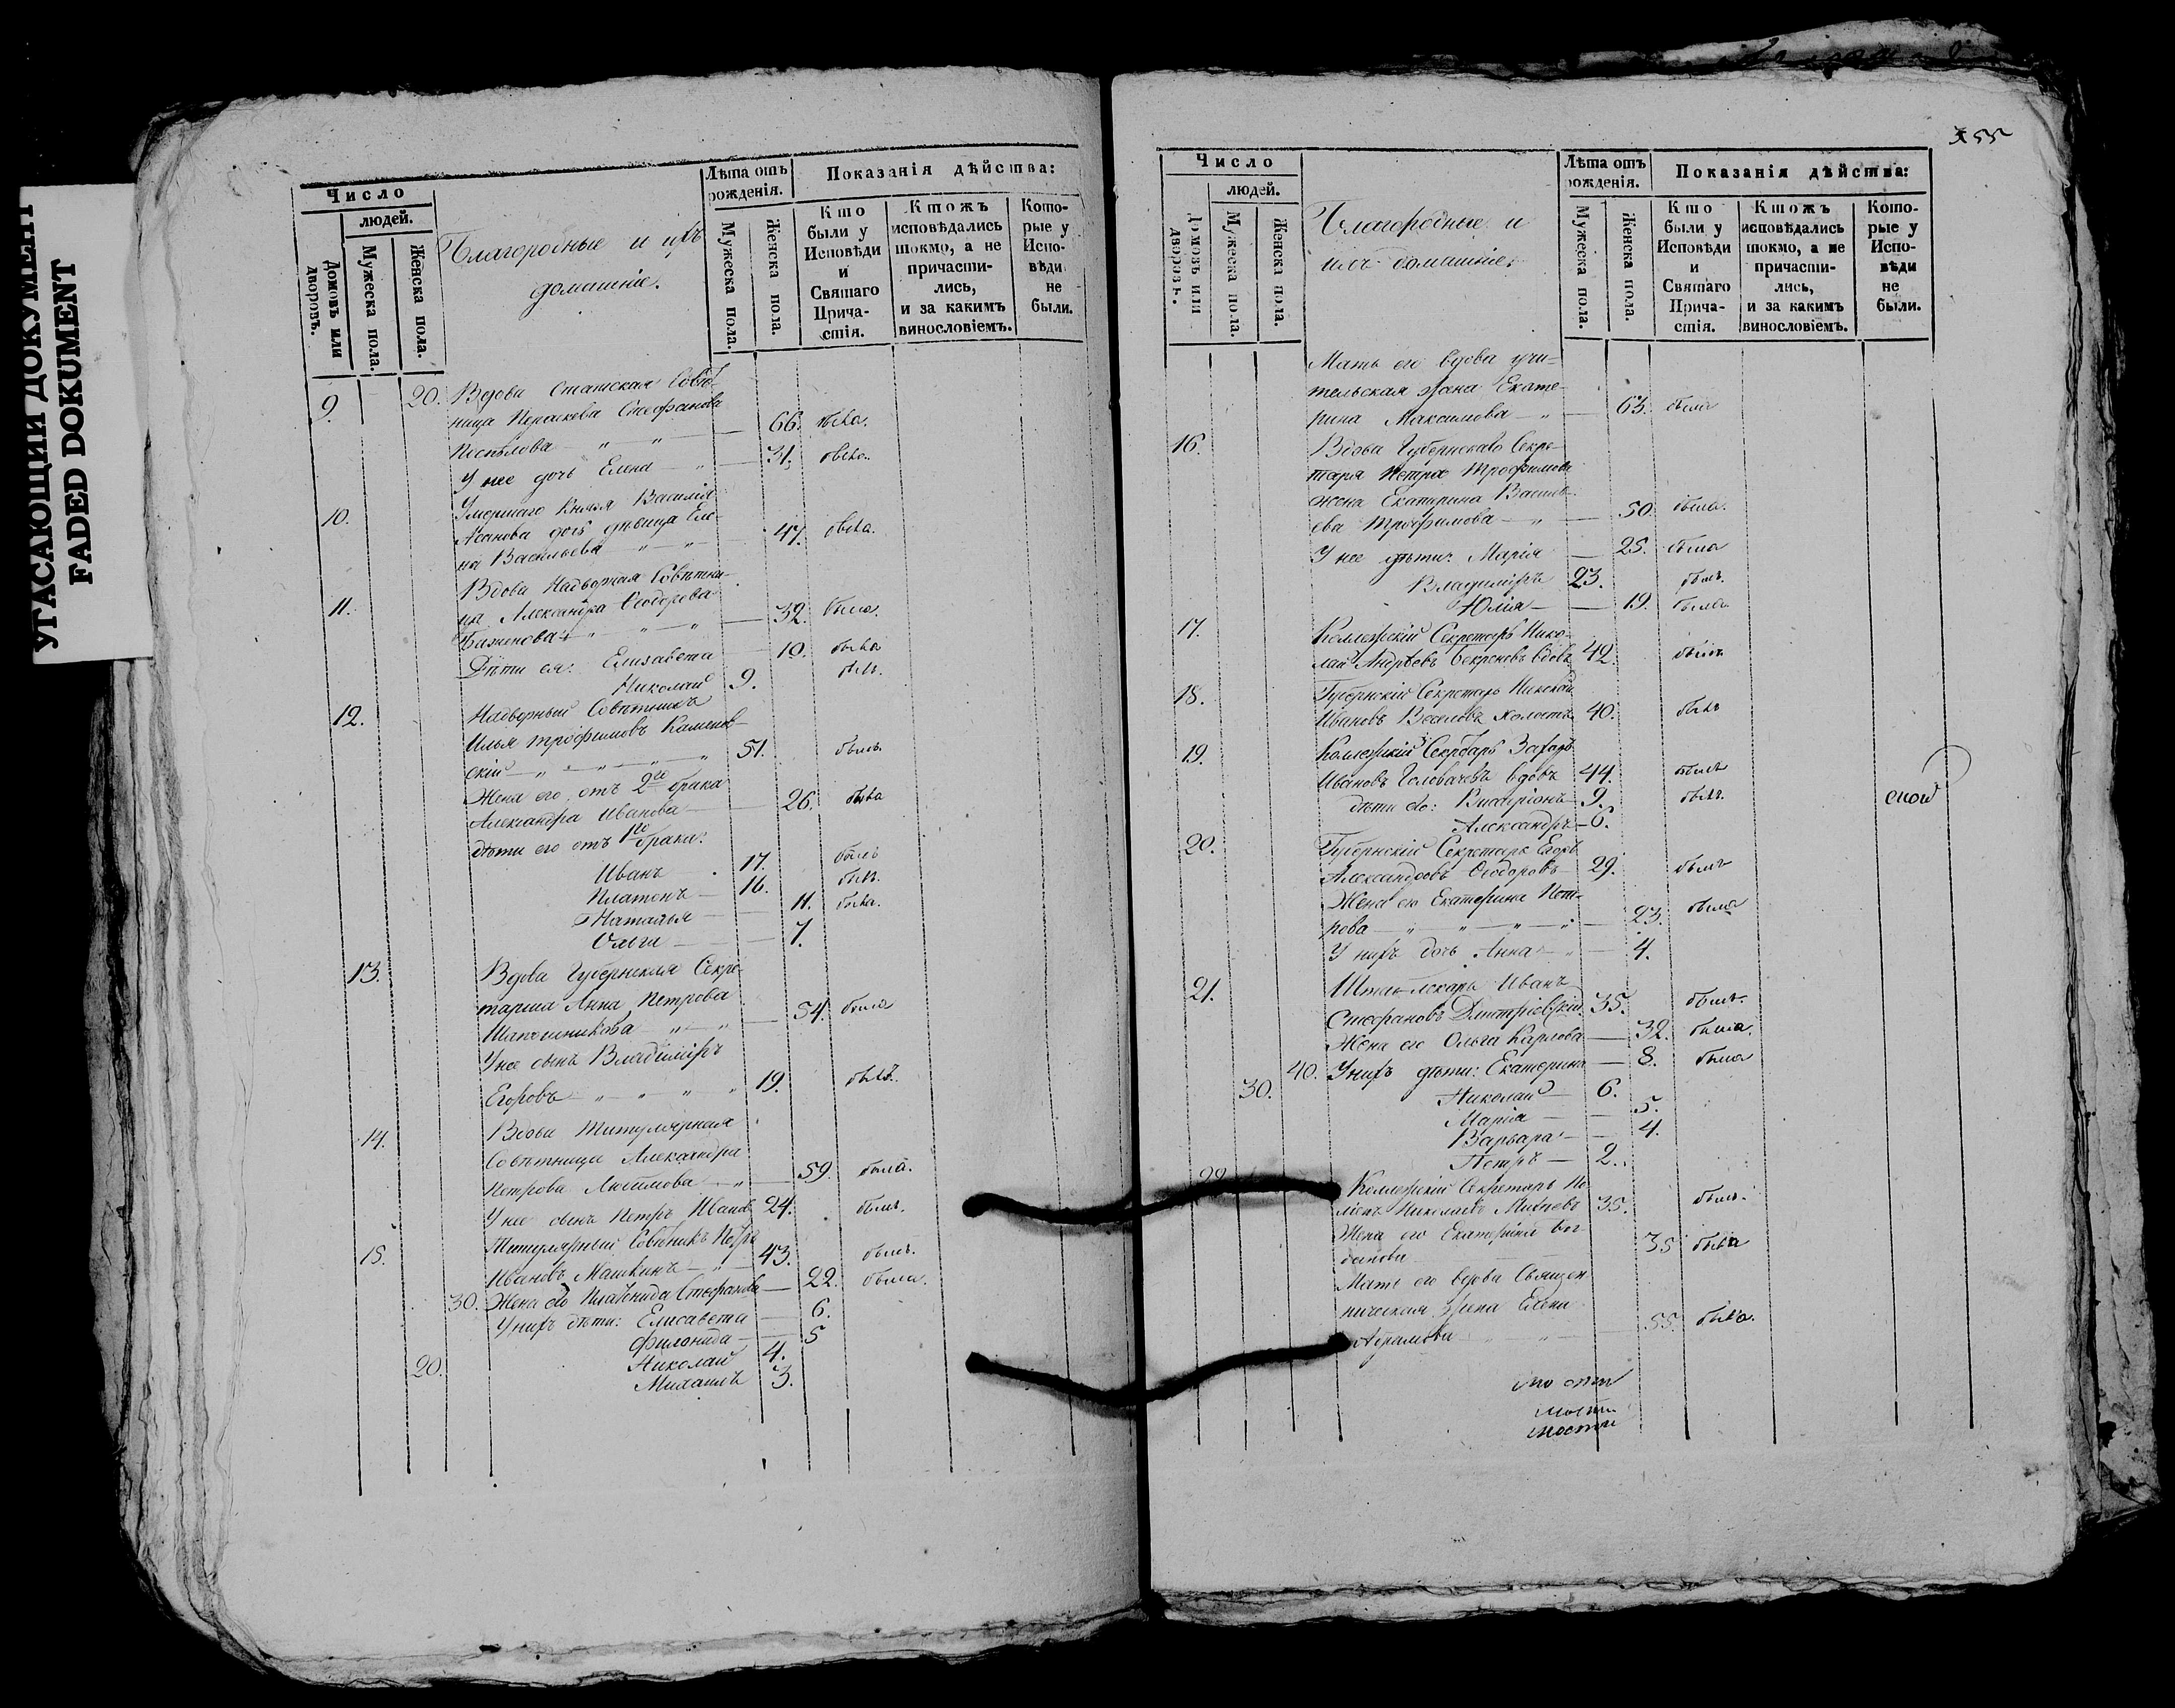 УГАСАЮЩИЙ ДОКУМЕНТ
FADED DOKUMENT
Число
людей.
Домовъ или дворовъ.
Мужеска пола.
Женска пола.
Благородные и ихъ
домашніе.
Лѣта отъ рожденія.
Мужеска пола.
Женска пола.
Показанія дѣйства:
Кто были у Исповѣди и Святаго Причастія.
Ктожъ исповѣдались токмо, а не причастились, и за какимъ винословіемъ.
Которые у Исповѣди не были.
9. 20. Вдова Статская Совѣт-
ница Параскева Стефанова
66. была.
У нее дочь Елена 31. была.
10. Умершаго Князя Василія
дочь дѣвица Еле-
на Васильева 47. была.
11. Вдова Надворная Совѣтни-
ца Александра Ѳеодорова
Баженова 32. была.
Дѣти ея: Елизавета 10. была
Николай 9. былъ.
12. Надворный Совѣтникъ
Илья Трофимовъ Каменов-
скій 51. былъ.
Жена его отъ 2го брака
Александра Иванова 26. была
дѣти его отъ 1го брака:
Иванъ 17. былъ
Платонъ 16. былъ.
Наталья 11. была.
Ольга 7.
13. Вдова Губернская Секре-
тарша Анна Петрова
Шапошникова 54. была
У нее сынъ Владиміръ
Егоровъ 19. былъ.
14. Вдова Титулярная
Совѣтница Александра
Петрова 59. была.
У нее сынъ Петръ Иванов 24. былъ.
15. Титулярный Совѣтникъ Петръ
Ивановъ Машкинъ 43. былъ.
30. Жена его Стефанова 22. была.
У нихъ дѣти: Елисавета 6.
Филонида 5
20. Николай 4.
Михаилъ 3.
355
Число
людей.
Домовъ или дворовъ.
Мужеска пола.
Женска пола.
Благородные и
ихъ домашніе.
Лѣта отъ рожденія.
Мужеска пола.
Женска пола.
Показанія дѣйства:
Кто были у Исповѣди и Святаго Причастія.
Ктожъ исповѣдались токмо, а не причастились, и за какимъ винословіемъ.
Которые у Исповѣди не были.
Мать его вдова учи-
тельская жена Екате-
рина Максимова 63. была
16. Вдова Губернскаго Секре-
таря Петра Трофимова
жена Екатерина Василь-
ева Трофимова 50. была.
У нее дѣти: Марія 25. была
Владиміръ 23. былъ.
Юлія 19. была.
17. Коллежскій Секретарь Нико-
лай Андреевъ вдовъ 42. былъ
18. Губернскій Секретарь Николай
Ивановъ Веселовъ холостъ 40. былъ
19. Коллежскій Секретарь Захаръ
Ивановъ Головачевъ вдовъ 44. былъ
дѣти его: Висаріонъ 9. былъ.
Александръ 6.
20. Губернскій Секретарь Егоръ
Александровъ Ѳеодоровъ 29. былъ
Жена его Екатерина Пет-
рова 23. была
У нихъ дочь Анна 4.
21. Штабъ-лекарь Иванъ
Стефановъ Дмитріевскій 35. былъ.
Жена его Ольга Карлова 32. была.
30. 40. У нихъ дѣти: Екатерина 8. была
Николай 6.
Марія 5.
Варвара 4.
Петръ 2.
22. Коллежскій Секретарь
Николаевъ 35. былъ.
Жена его Екатерина Бог-
данова 35 была
Мать его вдова Священ-
ническая жена Елена
Абрамова 55. была.